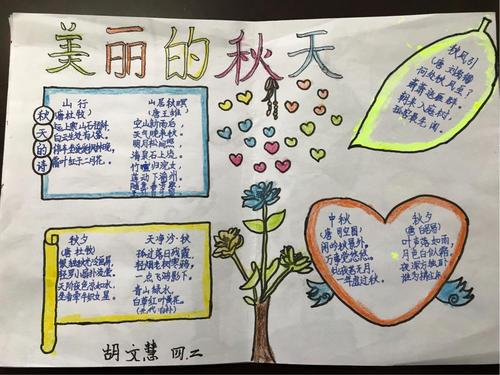 美丽的秋天
秋天的诗
山行
(唐 杜牧)
远上寒山石径斜,
白云生处有人家。
停车坐爱枫林晚,
霜叶红于二月花。
山居秋暝
(唐 王维)
空山新雨后,
天气晚来秋。
明月松间照,
清泉石上流。
竹喧归浣女,
莲动下渔舟。
随意春芳歇,
秋风引
(唐 刘禹锡)
何处秋风至?
萧萧送雁群。
朝来入庭树,
孤客最先闻。
秋夕
(唐 杜牧)
银烛秋光冷画屏,
轻罗小扇扑流萤。
天阶夜色凉如水,
坐看牵牛织女星。
天净沙·秋
孤村落日残霞,
轻烟老树寒鸦,
一点飞鸿影下。
青山绿水,
白草红叶黄花。
(元代 白朴)
中秋
(唐 司空图)
闲吟秋景外,
万事觉悠悠。
此夜若无月,
一年虚过秋。
秋夕
(唐 白居易)
叶声落如雨,
月色白似霜。
夜深方独卧,
谁为拂尘床。
胡文慧 四.二